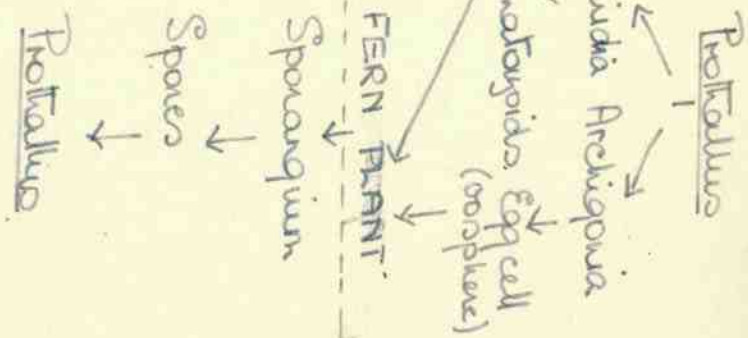 Prothallus
idia Archigonia
atozoids. Egg cell
(oosphere)
FERN PLANT
Sporangium
Spores
Prothallus